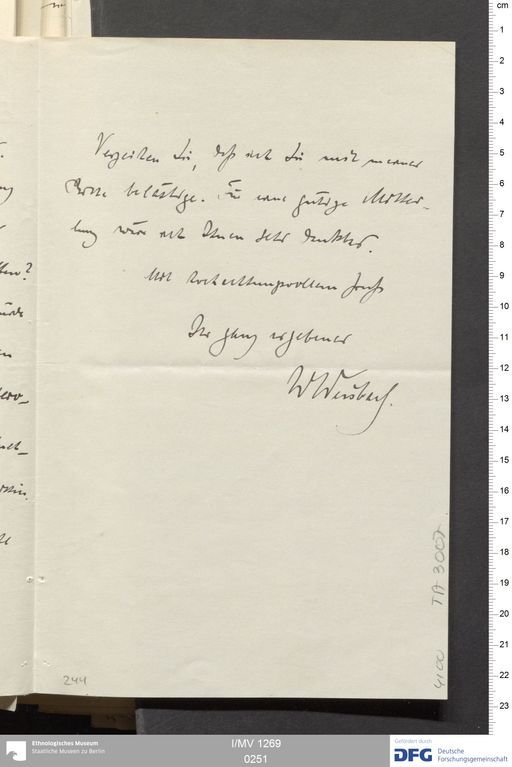 Verzeihen Sie, daß ich Sie mit meiner
Bitte belästige. Für eine gütige Mittei-
lung wäre ich Ihnen sehr dankbar.
Mit hochachtungsvollem Gruß
Ihr ganz ergebener
W Weisbach.
244
4100
TA 3007
Ethnologisches Museum
Staatliche Museen zu Berlin
I/MV 1269
0251
Gefördert durch
DFG Deutsche
Forschungsgemeinschaft
cm
1
2
3
4
5
6
7
8
9
10
11
12
13
14
15
16
17
18
19
20
21
22
23